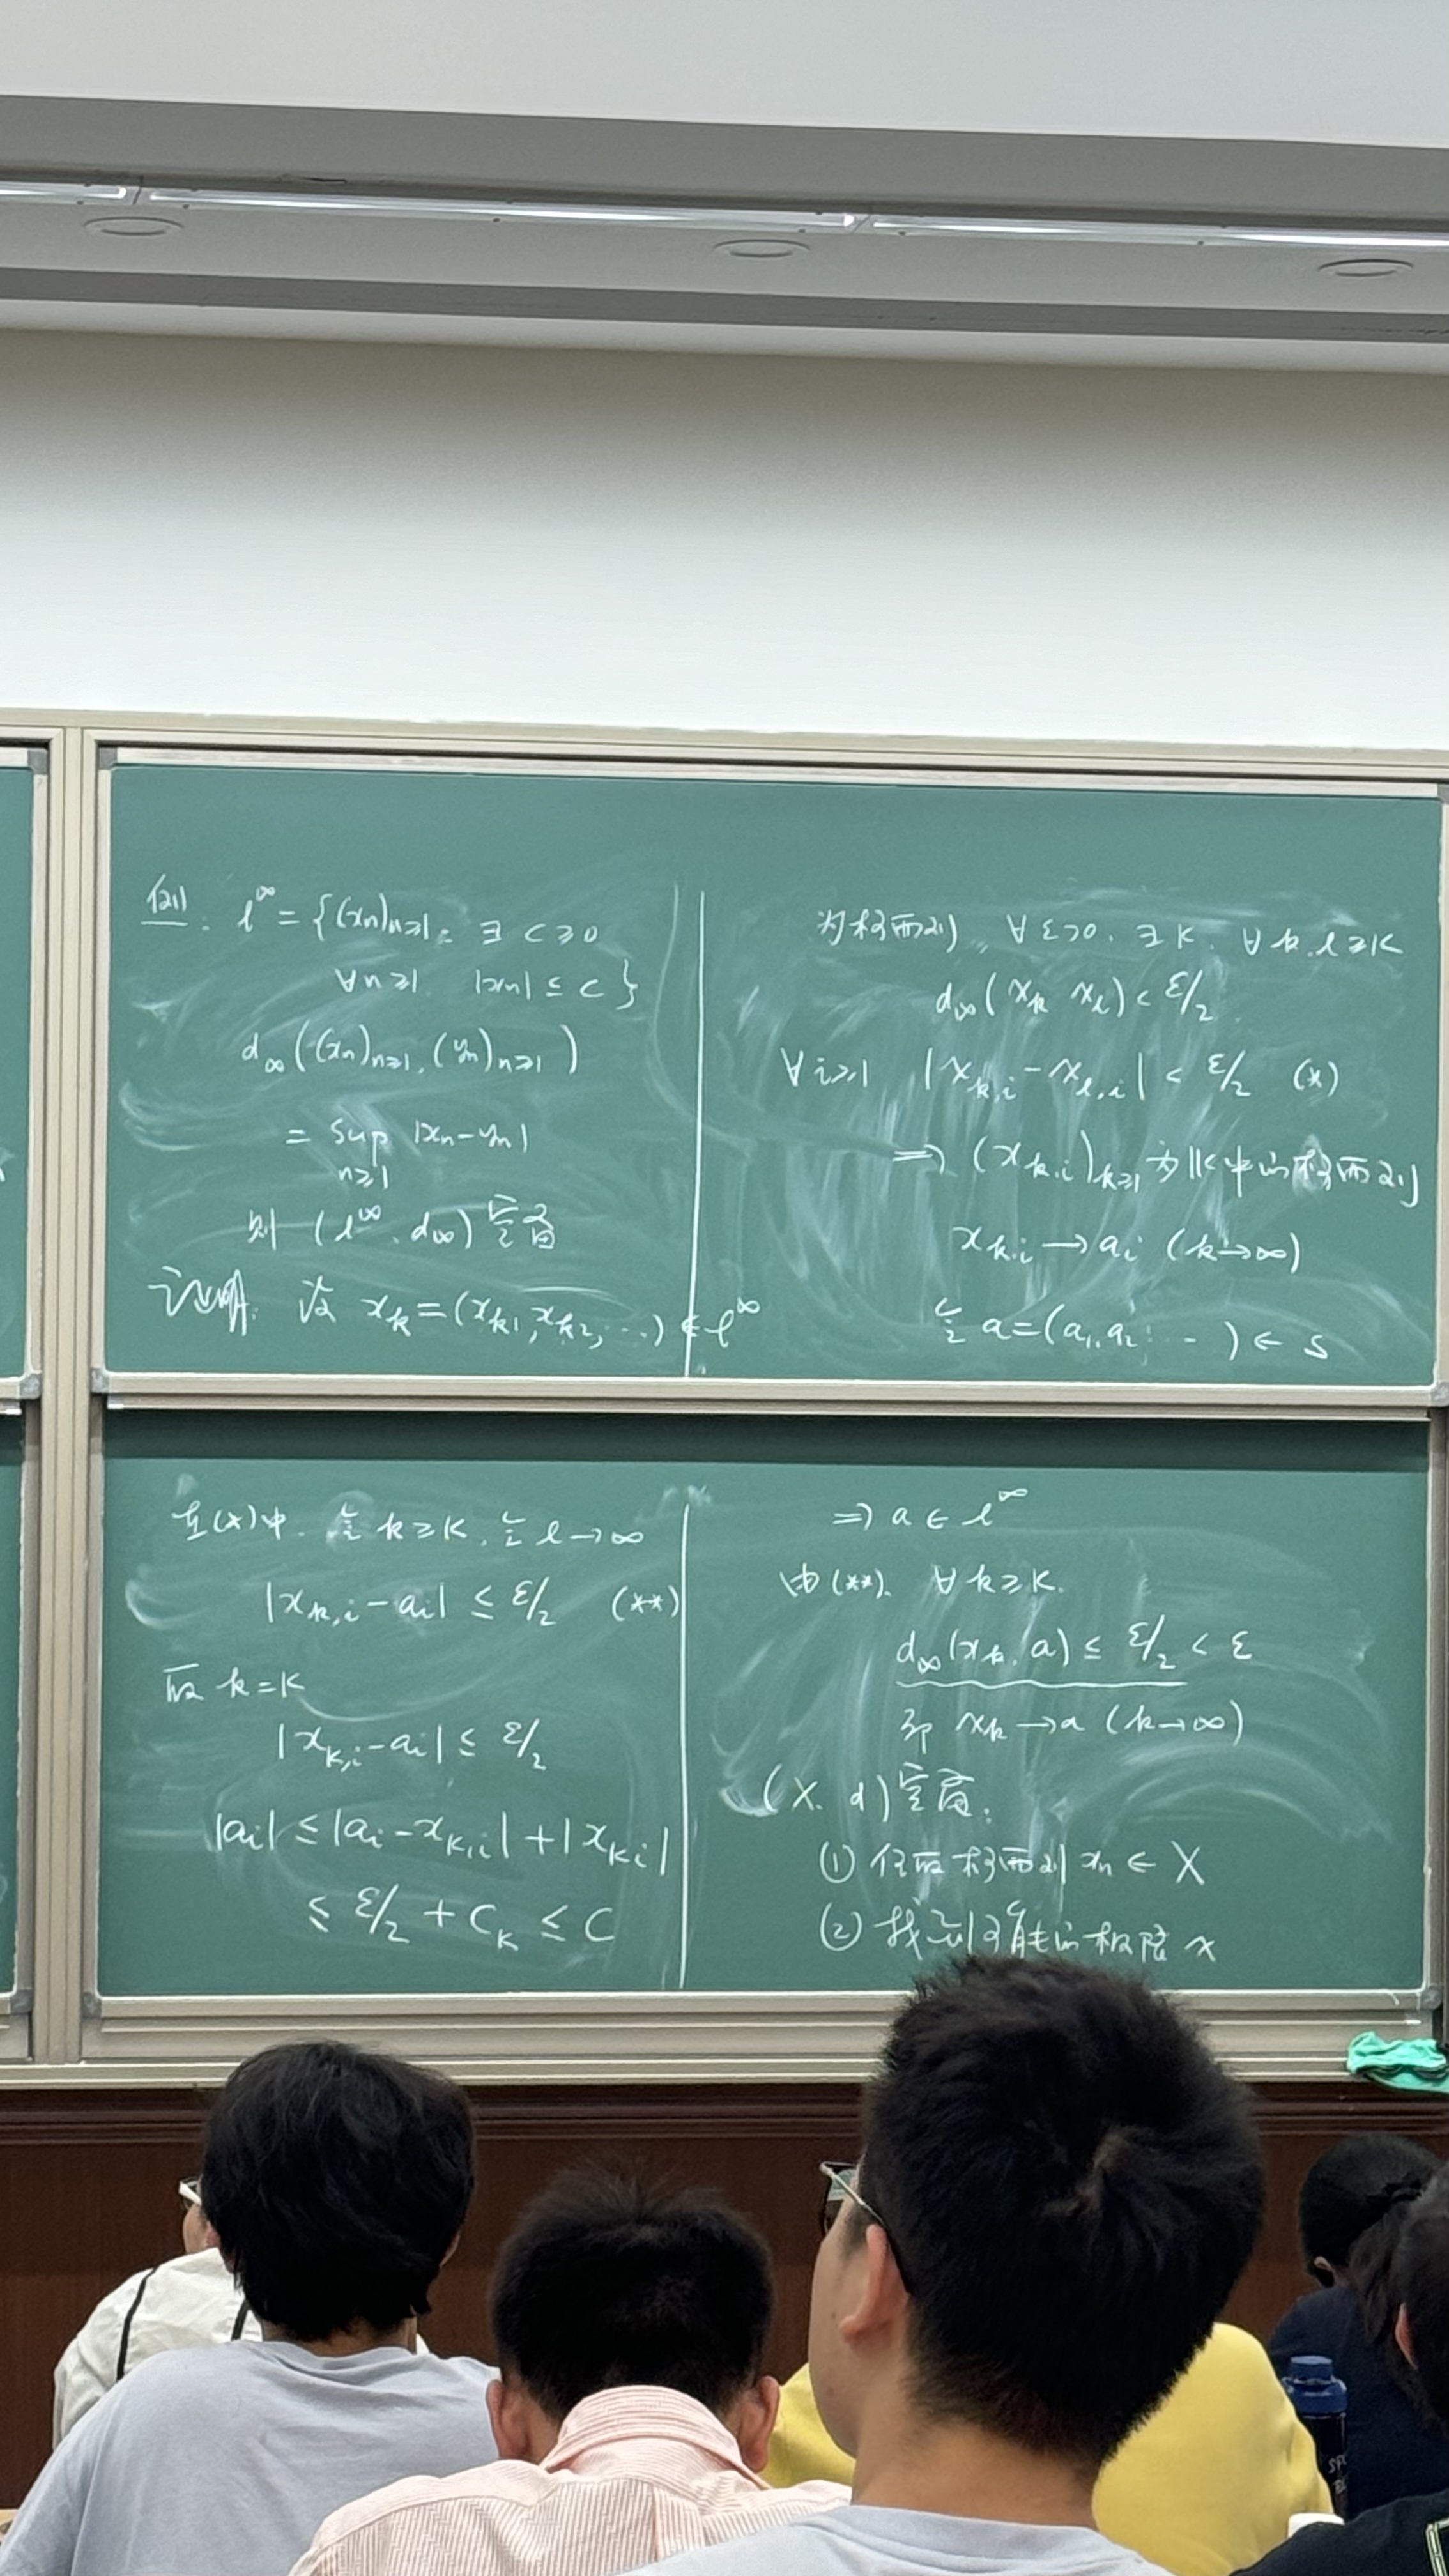 例: l^∞ = {(xn)n≥1: ∃ C≥0
∀n≥1 |xn| ≤ C }
d∞((xn)n≥1, (yn)n≥1)
= sup |xn-yn|
n≥1
则 (l^∞, d∞) 完备
证明: 设 xk=(xk1, xk2, ...) ∈ l^∞
为柯西列, ∀ε>0, ∃K, ∀k,l≥K
d∞(xk xl) < ε/2
∀i≥1 |xk,i - xl,i| < ε/2 (*)
⇒ (xk,i)k≥1 为K中的柯西列
xk,i → ai (k→∞)
令 a=(a1,a2, ...) ∈ S
在(*)中, 令 k≥K, 令 l→∞
|xk,i - ai| ≤ ε/2 (**)
取 k=K
|xK,i - ai| ≤ ε/2
|ai| ≤ |ai - xK,i| + |xKi|
≤ ε/2 + CK ≤ C
⇒ a ∈ l^∞
由(**), ∀k≥K,
d∞(xk, a) ≤ ε/2 < ε
即 xk → a (k→∞)
(X, d)完备:
① 任取柯西列 xn ∈ X
② 找到可能的极限 x